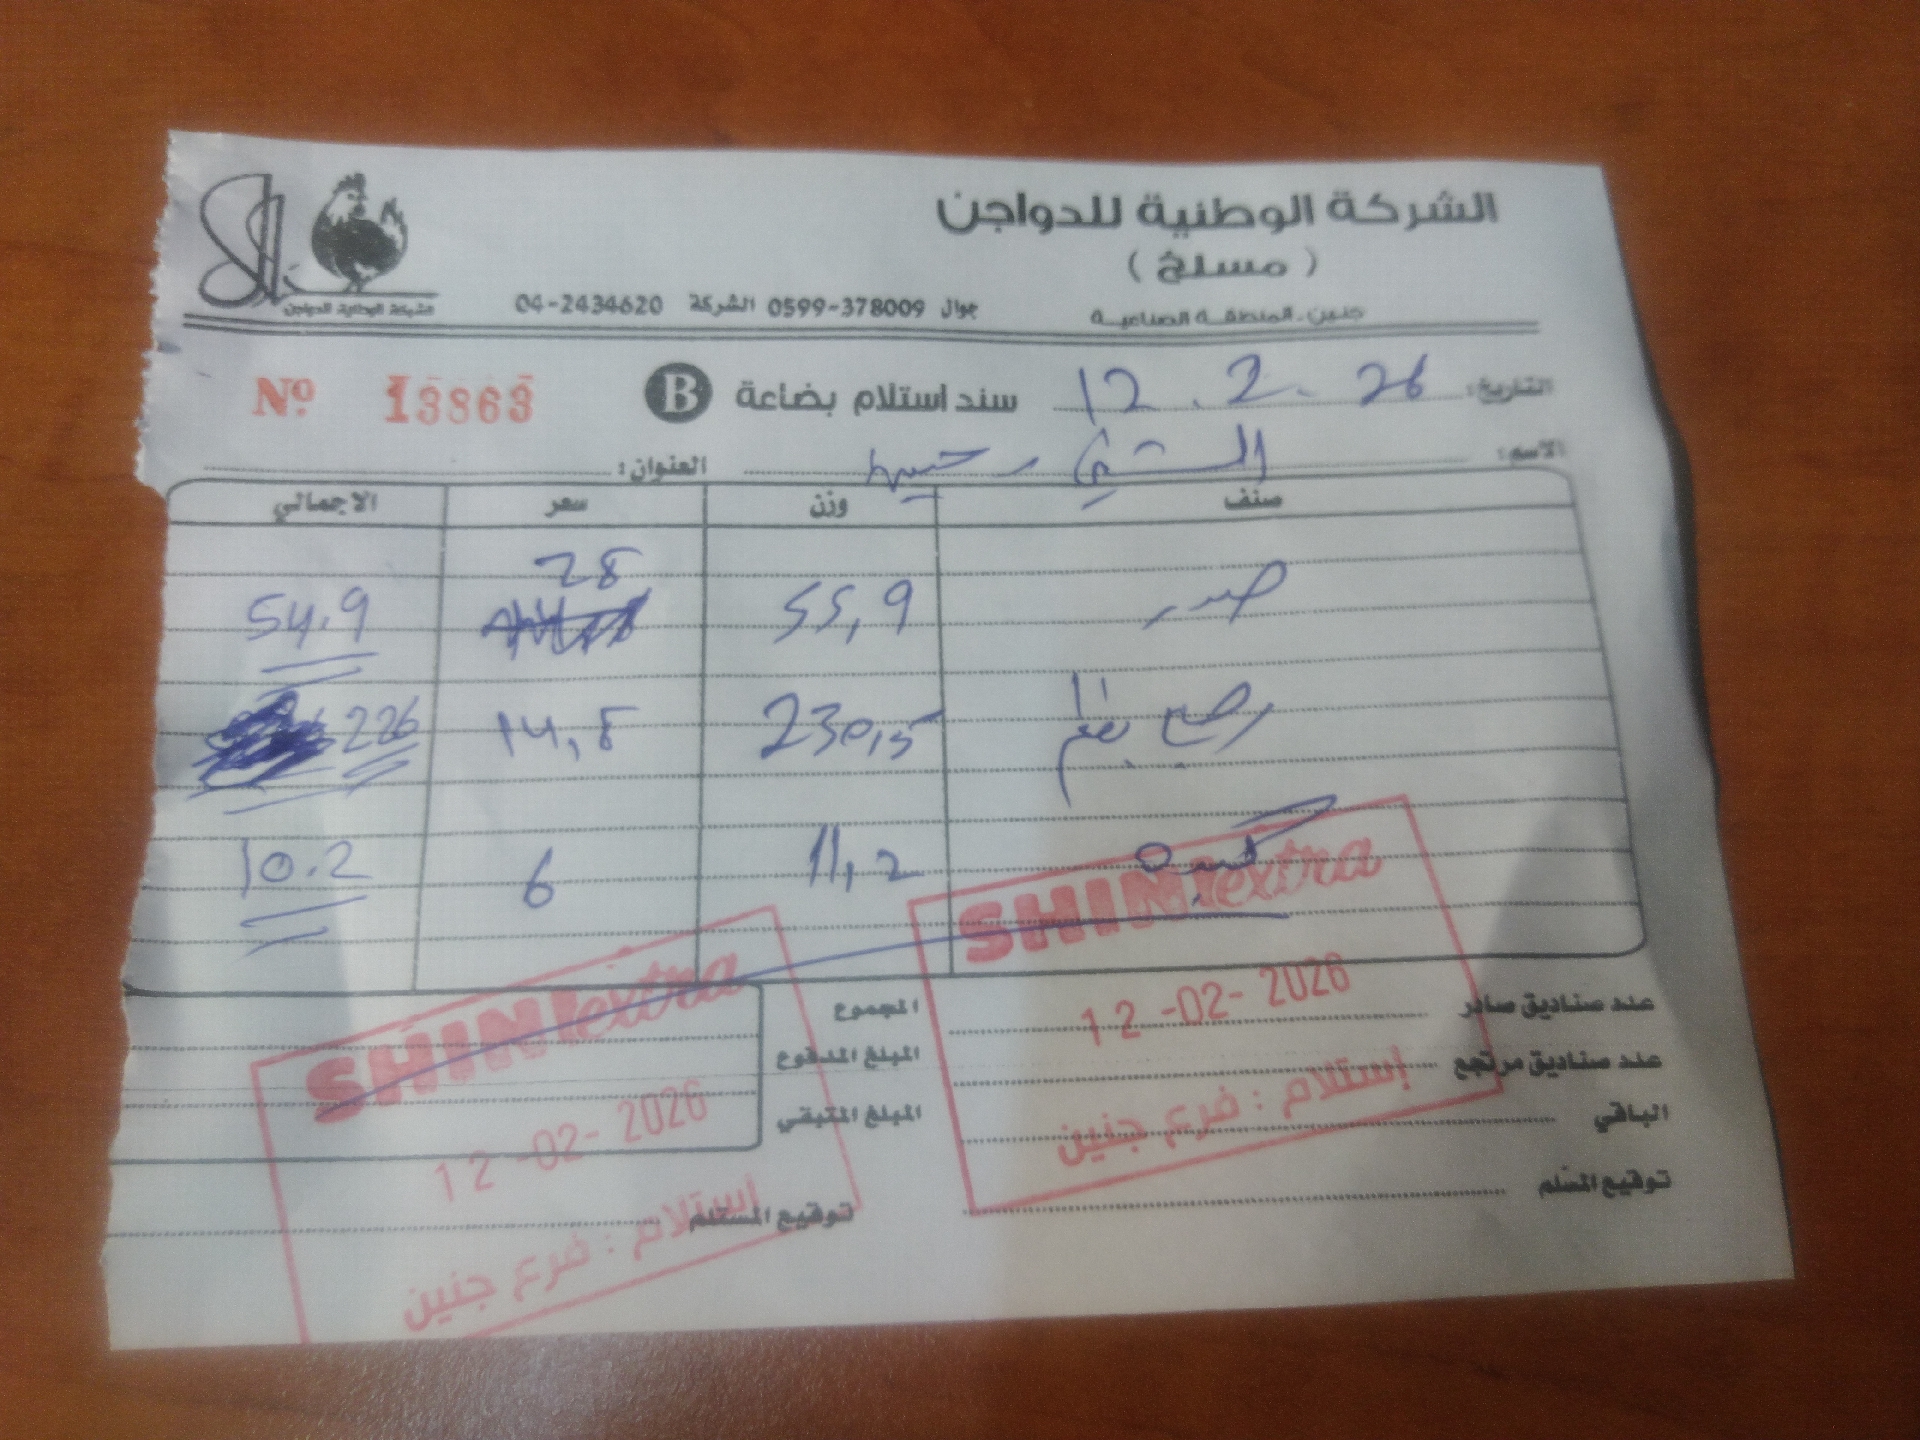 الشركة الوطنية للدواجن
( مسلخ )
جنين - المنطقة الصناعية
جوال 0599-378009 الشركة 04-2434620
الشركة الوطنية للدواجن
التاريخ: 12.2.26
سند استلام بضاعة B
Nº 13363
الاسم:
العنوان:
صنف وزن سعر الاجمالي
صدر 55,9 28 54.9
230,5 14,8 226
11,2 6 10.2
SHINI extra
12-02-2026
إستلام : فرع جنين
SHINI extra
12-02-2026
إستلام : فرع جنين
عدد صناديق صادر
المجموع
عدد صناديق مرتجع
المبلغ المدفوع
الباقي
المبلغ المتبقي
توقيع المسّلم
توقيع المستلم